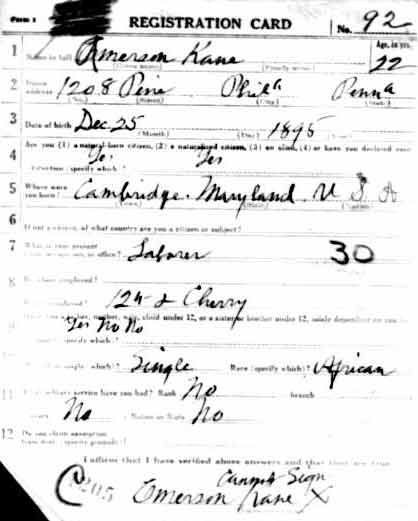 Form 1 REGISTRATION CARD No. 92
1 Name in full Emerson Kane Age, in yrs. 22
(Given name) (Family name)
2 Home address 1208 Pine Phila Penna
(No.) (Street) (City) (State)
3 Date of birth Dec 25 1895
(Month) (Day)
4 Are you (1) a natural-born citizen, (2) a naturalized citizen, (3) an alien, (4) or have you declared your
intention (specify which)? Yes
5 Where were you born? Cambridge. Maryland. U S A
6 If not a citizen, of what country are you a citizen or subject?
7 What is your present trade, occupation, or office? Laborer 30
8 By whom employed?
Where employed? 12th & Cherry
9 father, mother, wife, child under 12, or a sister or brother under 12, solely dependent on
specify which)? Yes No No
10 single (which)? Single Race (specify which)? African
11 What military service have you had? Rank No branch
years No Nation or State No
12 Do you claim exemption
from draft (specify grounds)?
I affirm that I have verified above answers and that they are true
Cannot Sign
Emerson Kane X